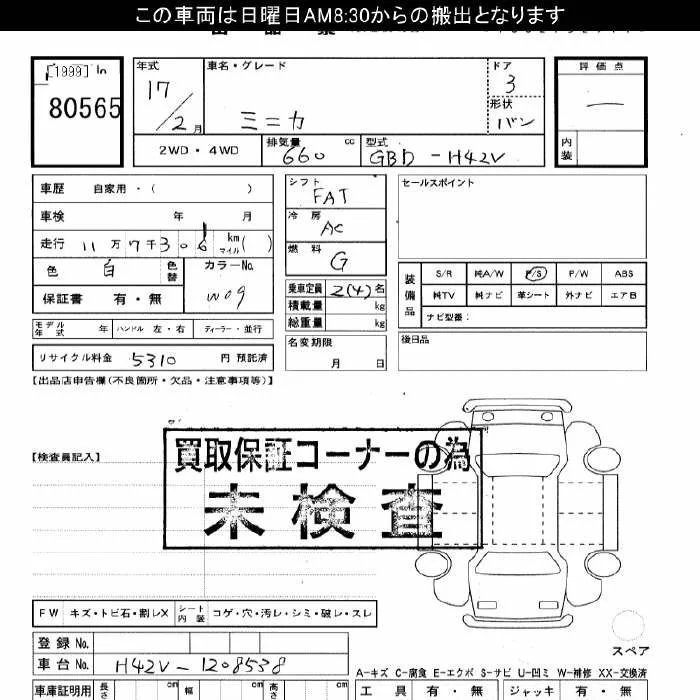 この車両は日曜日AM8:30からの搬出となります
[1999] In
80565
年式 17/2月
車名・グレード ミニカ
ドア 3
形状 バン
評価点 —
内装
2WD・4WD
排気量 660 cc
型式 GBD-H42V
車歴 自家用・( )
車検 年 月
走行 11万7千306 km マイル ( )
色 白 色替
カラーNo. W09
保証書 有・無
シフト FAT
冷房 AC
燃料 G
乗車定員 2(4)名
積載量 kg
総重量 kg
セールスポイント
装備品
S/R 純A/W P/S P/W ABS
純TV 純ナビ 革シート 外ナビ エアB
ナビ型番:
モデル年式 年 ハンドル 左・右 ディーラー・並行
名変期限 月 日
後日品
リサイクル料金 5310 円 預託済
【出品店申告欄(不良箇所・欠品・注意事項等)】
買取保証コーナーの為
【検査員記入】
未検査
FW キズ・トビ石・割レX シート内装 コゲ・穴・汚レ・シミ・破レ・スレ
スペア
登録No.
車台No. H42V-1208538
A-キズ C-腐食 E-エクボ S-サビ U-凹ミ W-補修 XX-交換済
車庫証明用 長さ cm 幅 cm 高さ cm
工具 有・無 ジャッキ 有・無